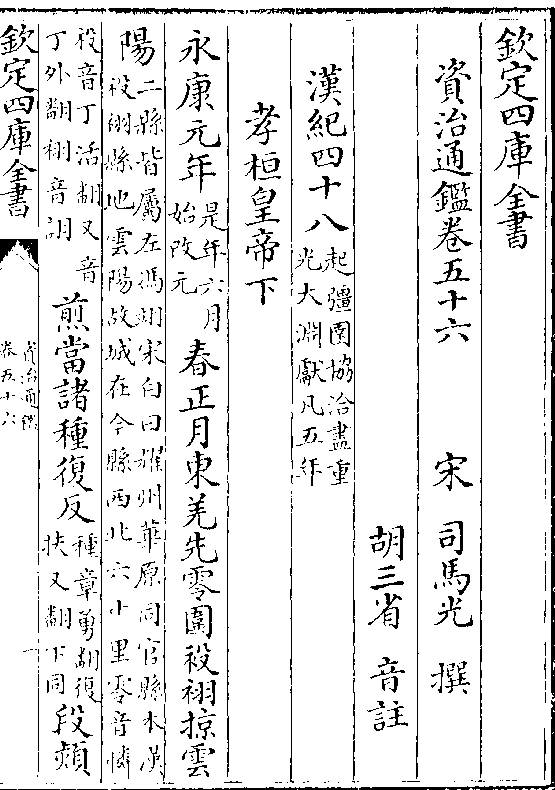 欽定四庫全書
資治通鑑卷五十六
宋 司馬光 撰
胡三省 音註
漢紀四十八起彊圉協洽盡重
光大淵獻凡五年
孝桓皇帝下
永康元年是年六月
始改元春正月東羌先零圍祋祤掠雲
陽二縣皆屬左馮翊宋白曰耀州華原同官縣本漢
祋祤縣地雲陽故城在今縣西北六十里零音憐
祋音丁活翻又音
丁外翻祤音詡煎當諸種復反種章勇翻復
扶又翻下同段熲
欽定四庫全書
資治通鑑
卷五十六
一